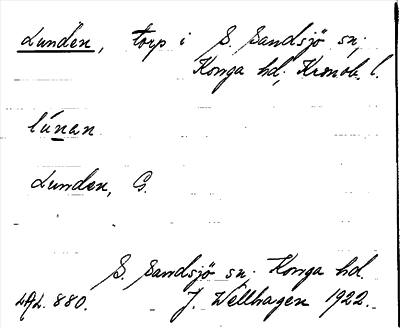 Lunden, torp i S. Sandsjö sn,
Konga hd, Kronob. l.
lúnan
Lunden, G.
S. Sandsjö sn, Konga hd.
LAL. 880. J. Wellhagen 1922.